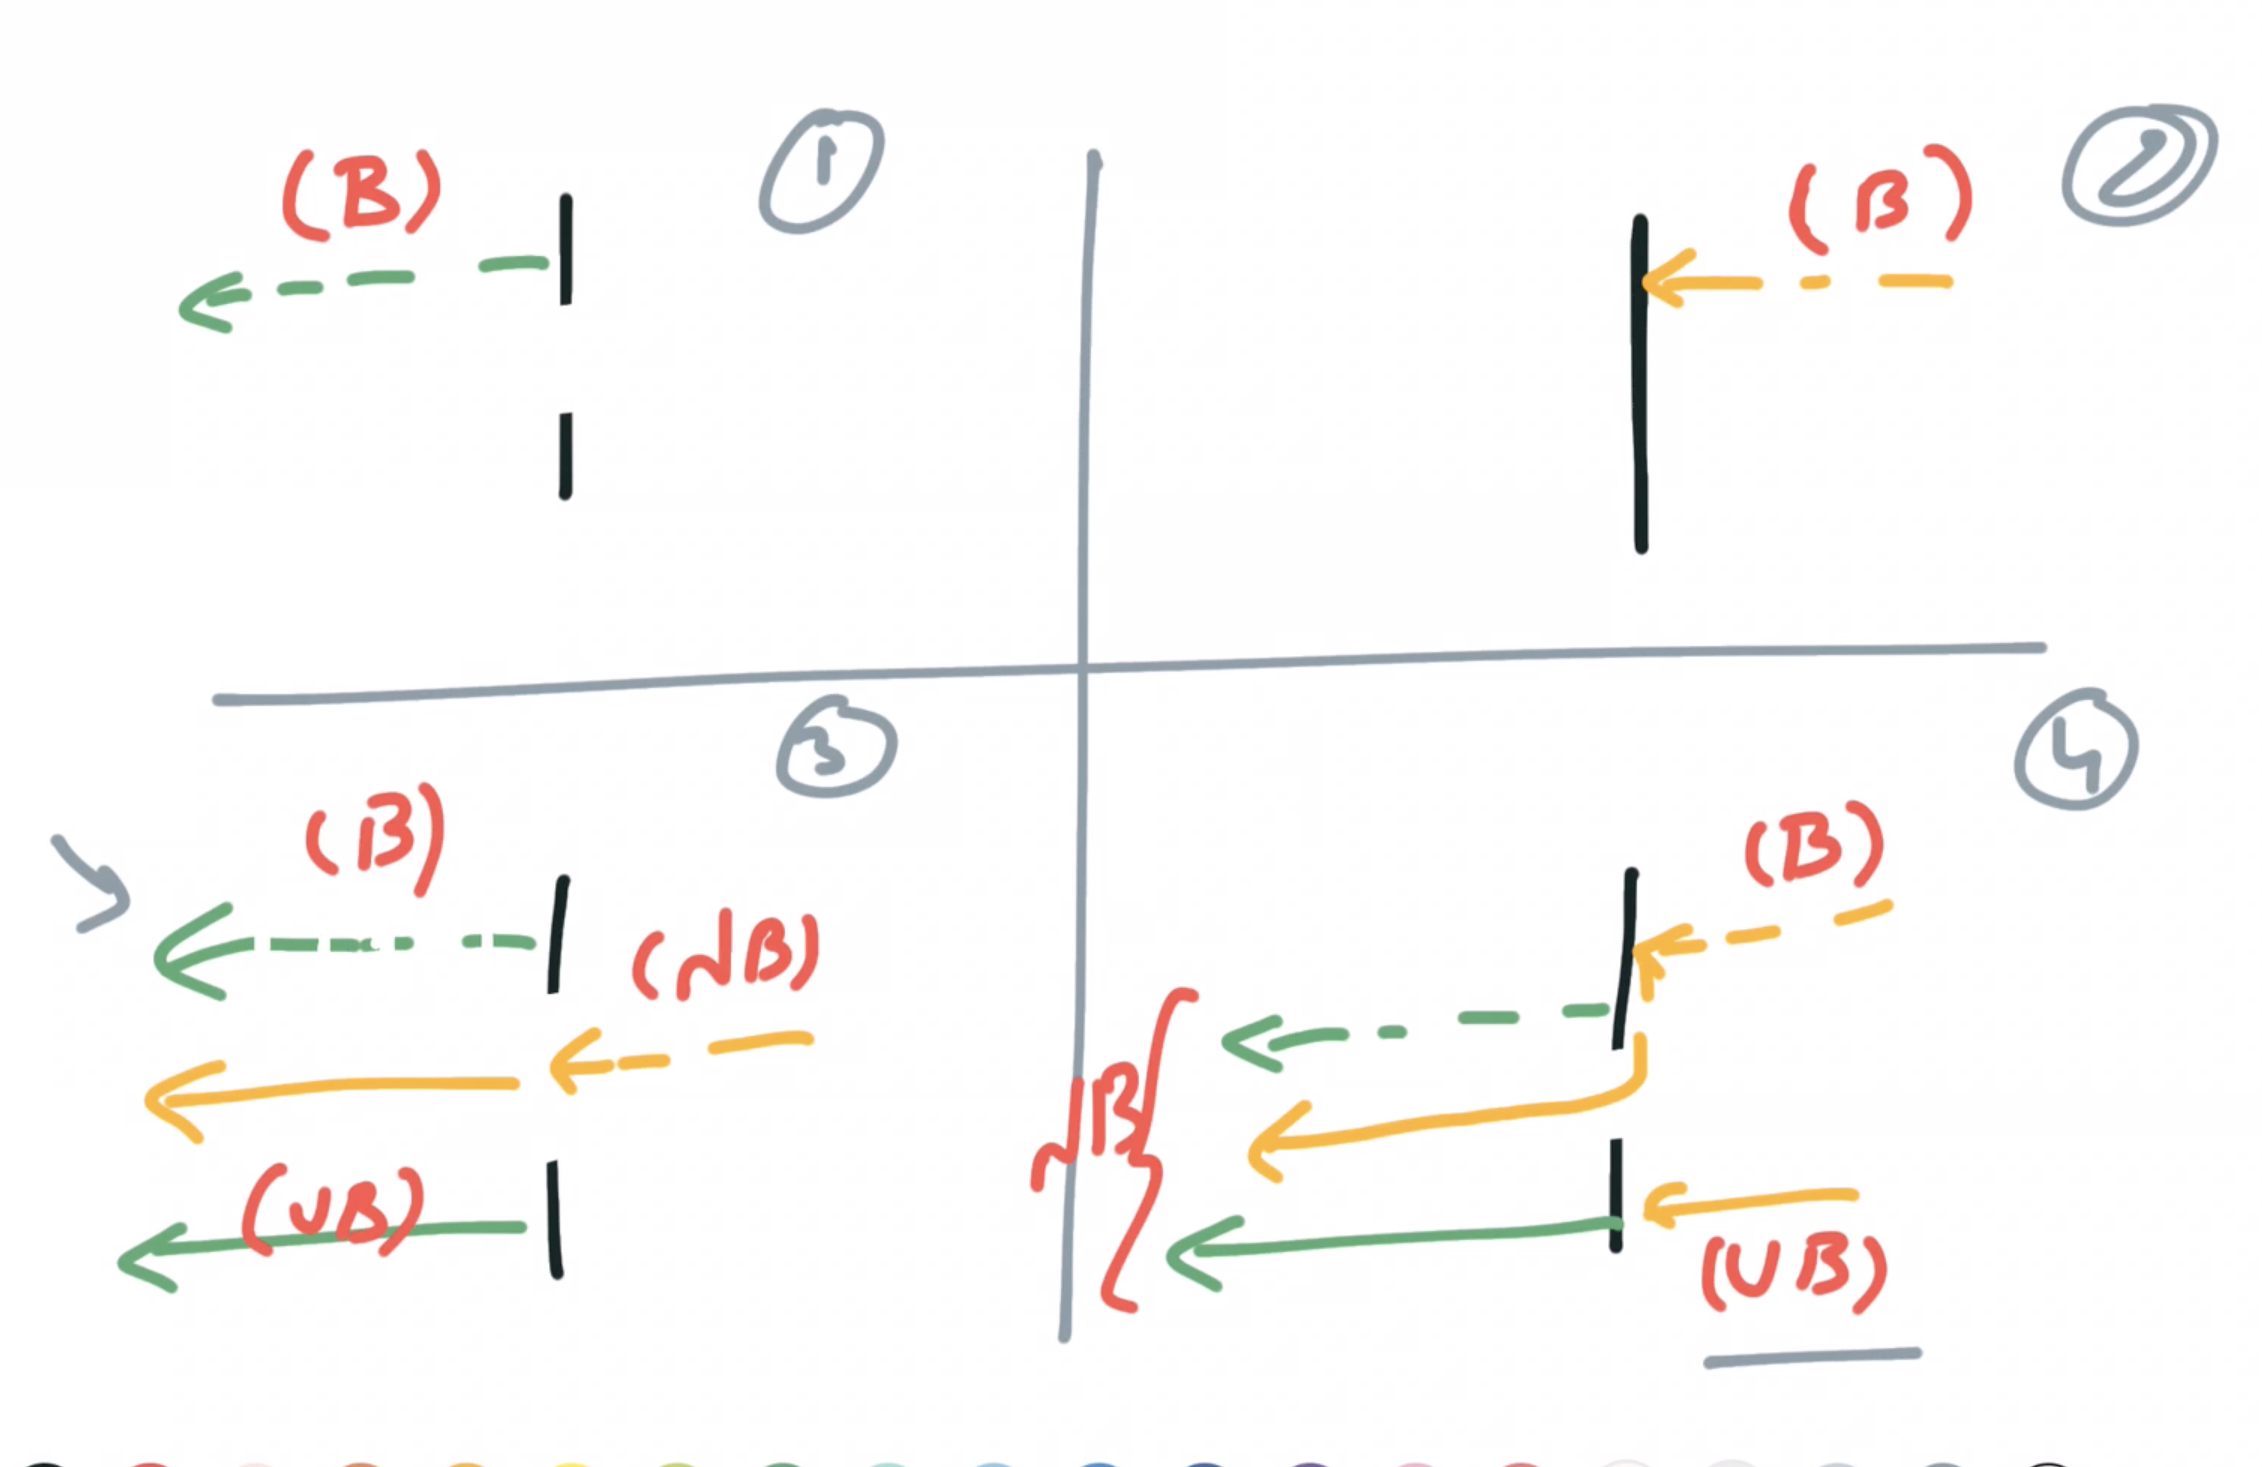 (B)
1
(B)
2
3
(B)
(NB)
(UB)
4
(B)
NB
(UB)